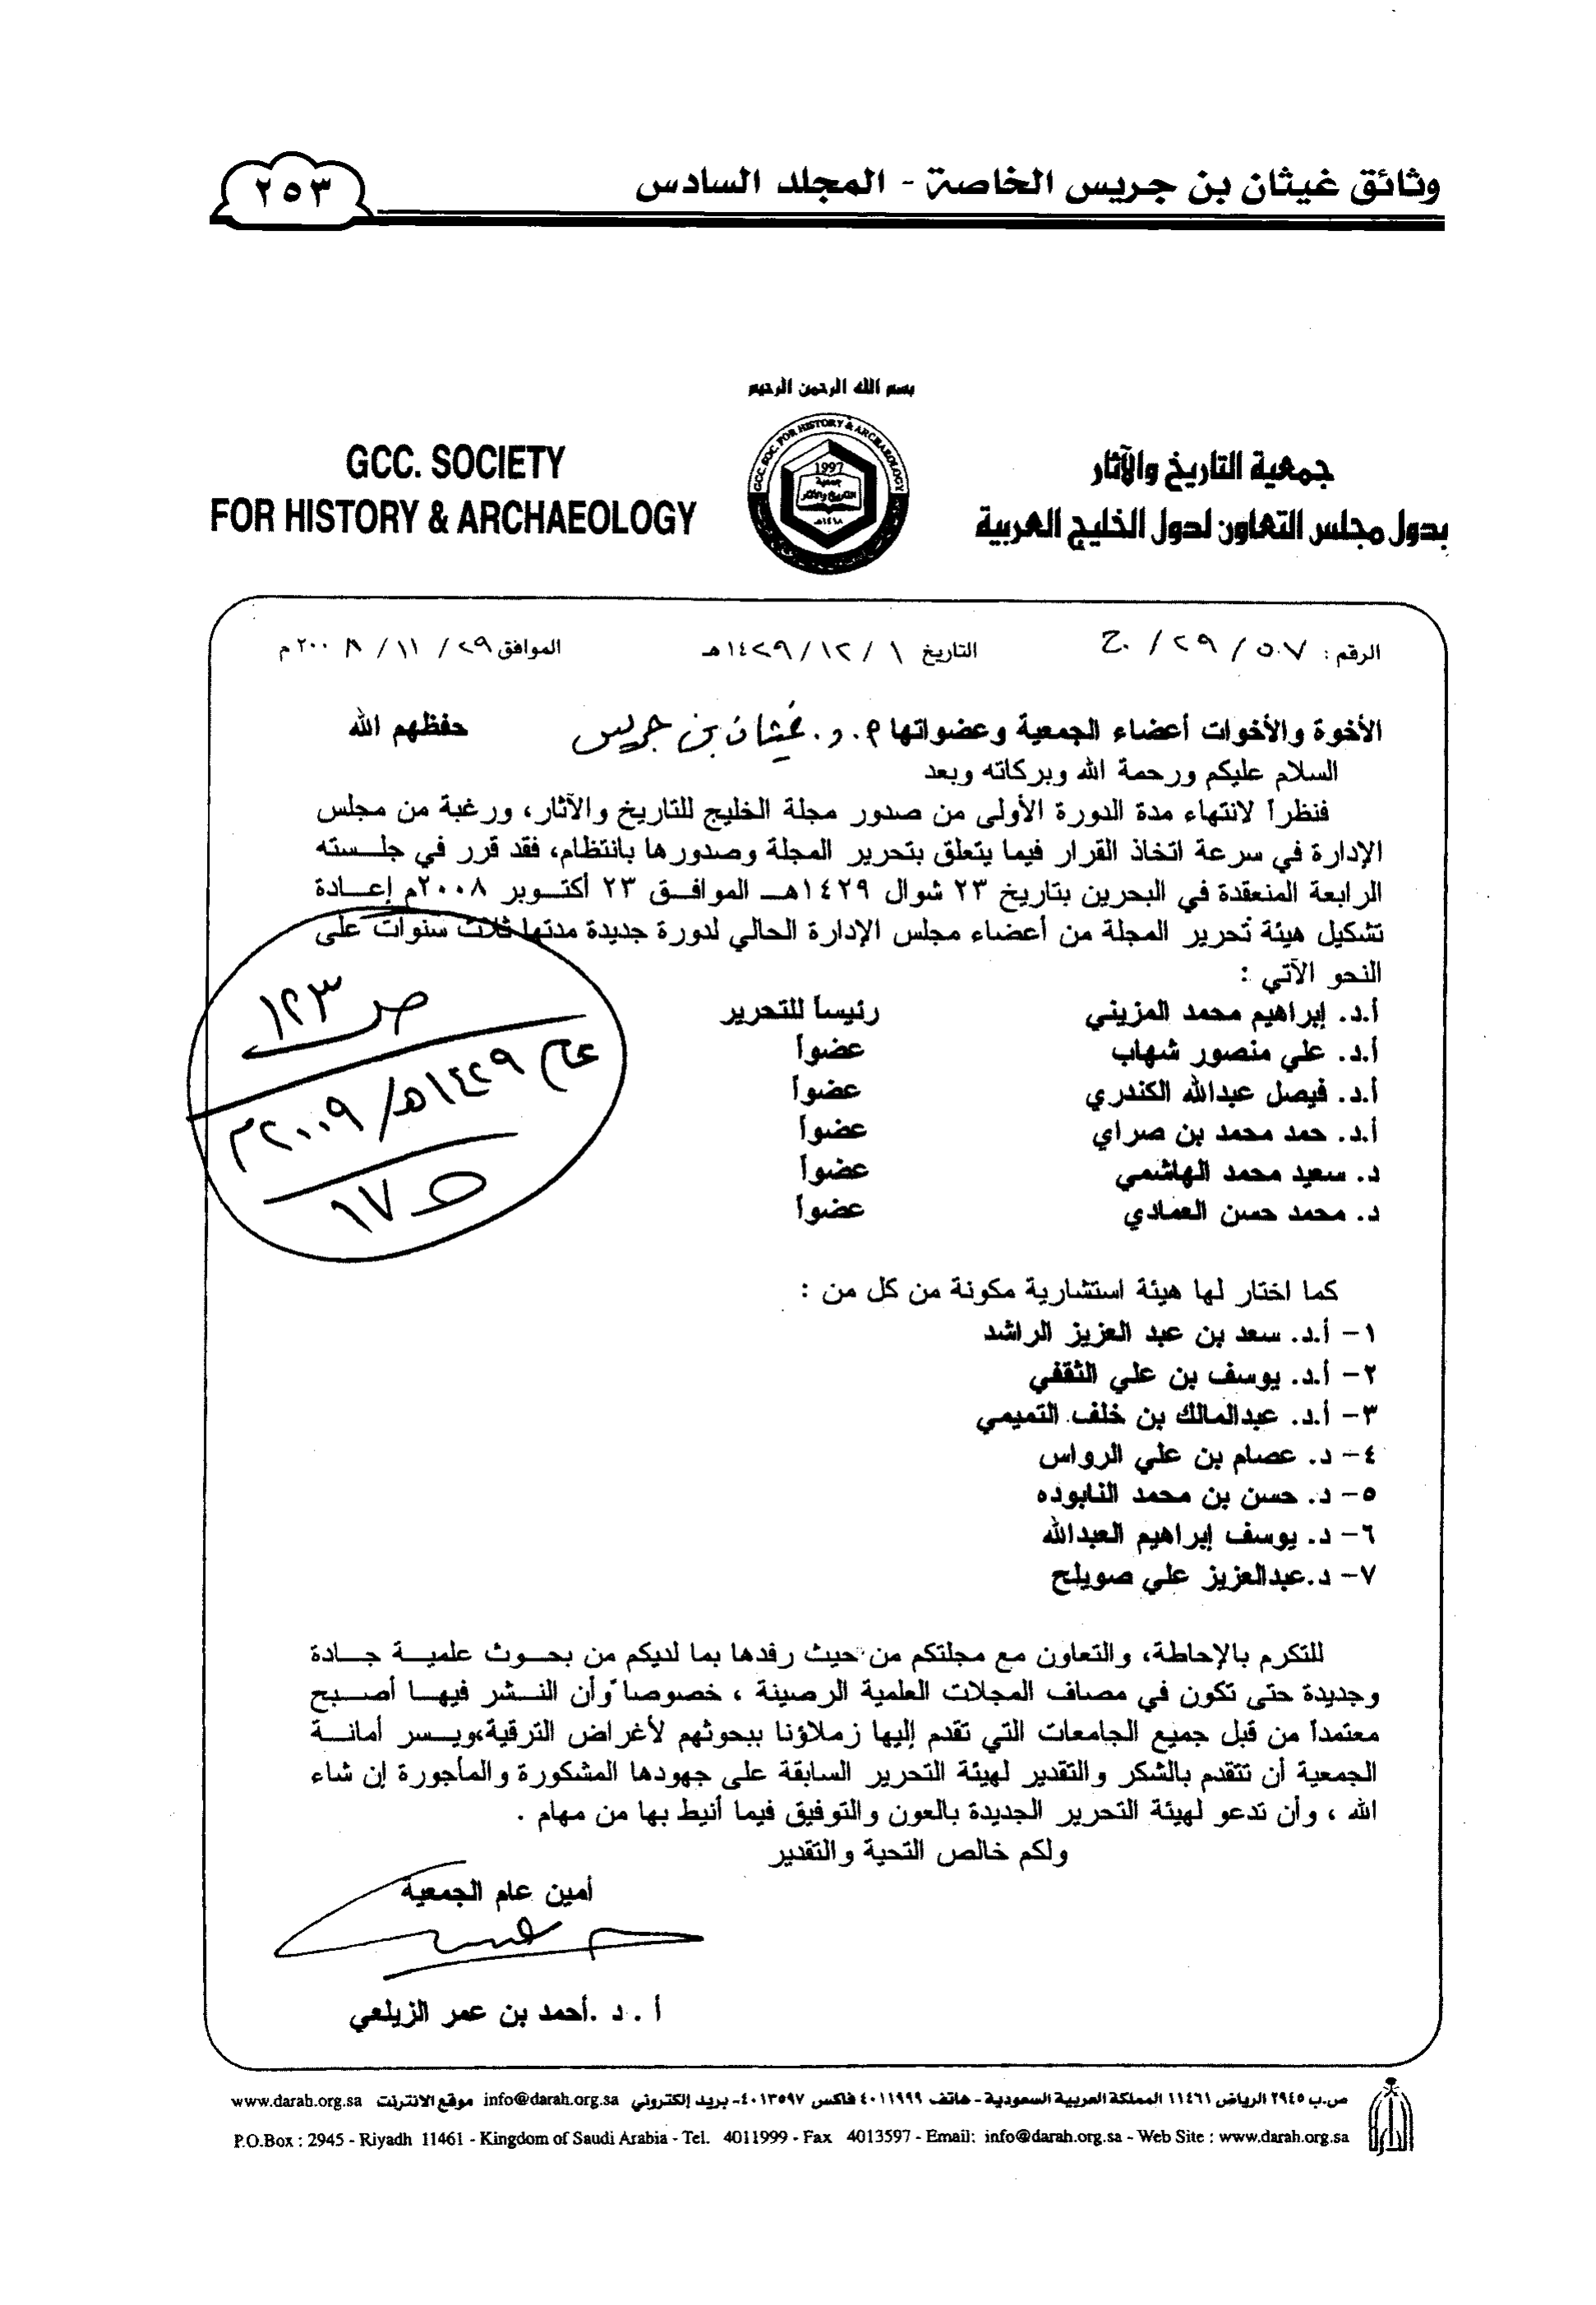 وثائق غيثان بن جريس الخاصة - المجلد السادس
٢٥٣
بسم الله الرحمن الرحيم
جمعية التاريخ والآثار
بدول مجلس التعاون لدول الخليج العربية
GCC. SOCIETY
FOR HISTORY & ARCHAEOLOGY
GCC SOC. FOR HISTORY & ARCHAEOLOGY
1997
جمعية
التاريخ والآثار
١٤١٨هـ
الرقم : ٥٠٧ / ٢٩ / ج٠ التاريخ ١ / ١٢ / ١٤٢٩هـ الموافق ٢٩ / ١١ / ٢٠٠٨م
الأخوة والأخوات أعضاء الجمعية وعضواتها أ. د. غيثان بن جريس حفظهم الله
السلام عليكم ورحمة الله وبركاته وبعد
فنظراً لانتهاء مدة الدورة الأولى من صدور مجلة الخليج للتاريخ والآثار، ورغبة من مجلس
الإدارة في سرعة اتخاذ القرار فيما يتعلق بتحرير المجلة وصدورها بانتظام، فقد قرر في جلسته
الرابعة المنعقدة في البحرين بتاريخ ٢٣ شوال ١٤٢٩هـ الموافق ٢٣ أكتوبر ٢٠٠٨م إعادة
تشكيل هيئة تحرير المجلة من أعضاء مجلس الإدارة الحالي لدورة جديدة مدتها ثلاث سنوات على
النحو الآتي :
أ.د. إبراهيم محمد المزيني رئيساً للتحرير
أ.د. علي منصور شهاب عضواً
أ.د. فيصل عبدالله الكندري عضواً
أ.د. حمد محمد بن صراي عضواً
د. سعيد محمد الهاشمي عضواً
د. محمد حسن العمادي عضواً
ص ١٢٣
عام ١٤٢٩هـ / ٢٠٠٩م
٦٧
كما اختار لها هيئة استشارية مكونة من كل من :
١- أ.د. سعد بن عبد العزيز الراشد
٢- أ.د. يوسف بن علي الثقفي
٣- أ.د. عبدالمالك بن خلف التميمي
٤- د. عصام بن علي الرواس
٥- د. حسن بن محمد النابوده
٦- د. يوسف إبراهيم العبدالله
٧- د.عبدالعزيز علي صويلح
للتكرم بالإحاطة، والتعاون مع مجلتكم من حيث رفدها بما لديكم من بحوث علمية جادة
وجديدة حتى تكون في مصاف المجلات العلمية الرصينة ، خصوصاً وأن النشر فيها أصبح
معتمداً من قبل جميع الجامعات التي تقدم إليها زملاؤنا ببحوثهم لأغراض الترقية،ويسر أمانة
الجمعية أن تتقدم بالشكر والتقدير لهيئة التحرير السابقة على جهودها المشكورة والمأجورة إن شاء
الله ، وأن تدعو لهيئة التحرير الجديدة بالعون والتوفيق فيما أنيط بها من مهام .
ولكم خالص التحية والتقدير
أمين عام الجمعية
أ . د .أحمد بن عمر الزيلعي
ص.ب ٢٩٤٥ الرياض ١١٤٦١ المملكة العربية السعودية - هاتف ٤٠١١٩٩٩ فاكس ٤٠١٣٥٩٧- بريد إلكتروني info@darah.org.sa موقع الانترنت www.darah.org.sa
P.O.Box : 2945 - Riyadh 11461 - Kingdom of Saudi Arabia - Tel. 4011999 - Fax 4013597 - Email: info@darah.org.sa - Web Site : www.darah.org.sa